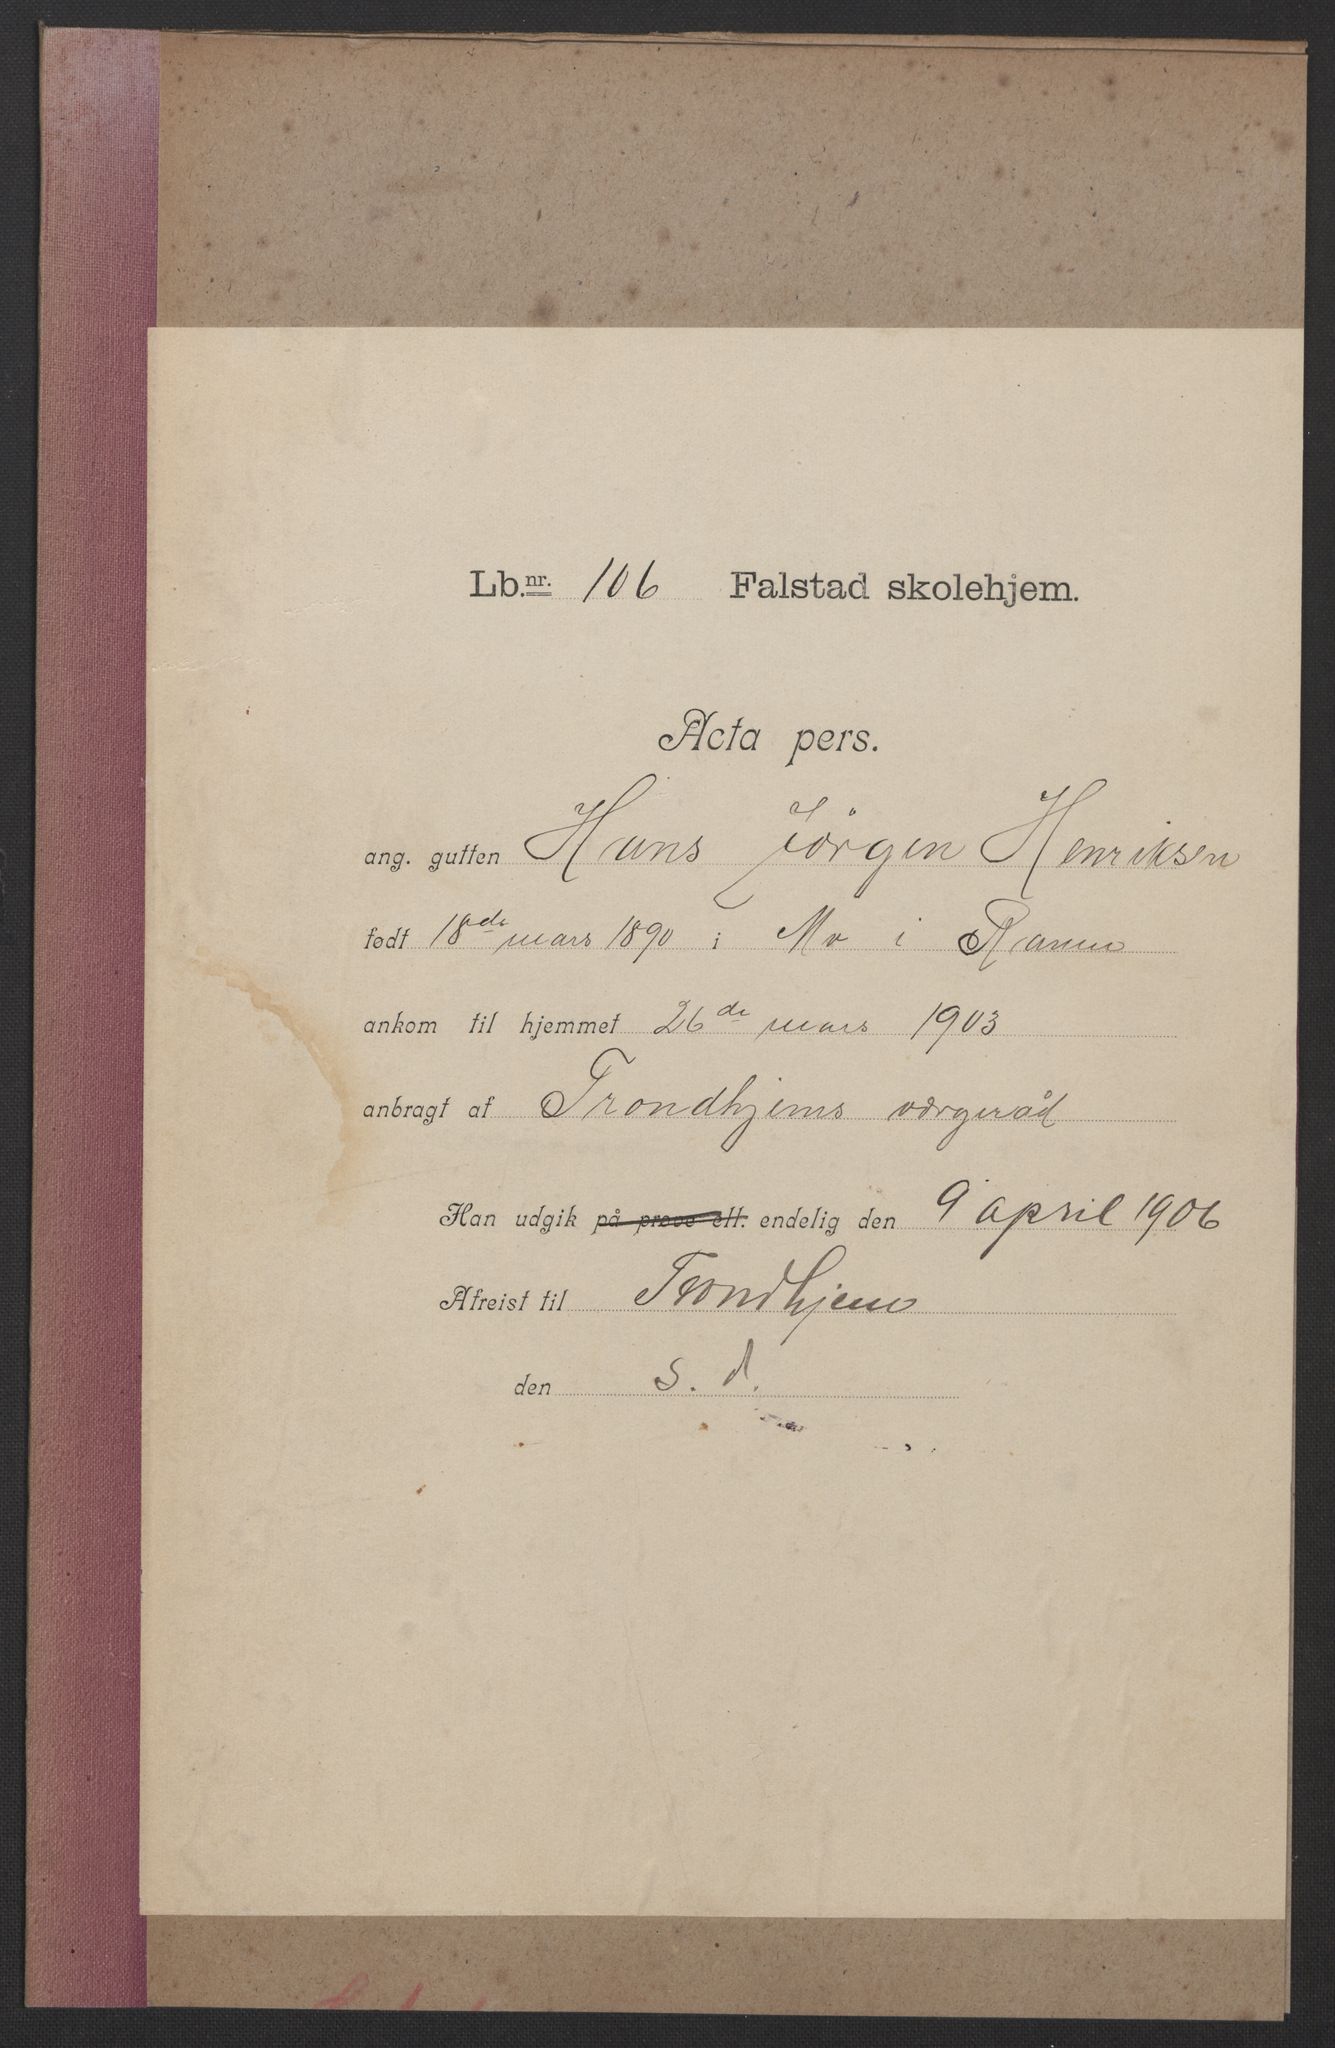 Lb.nr. 106 Falstad skolehjem.
Acta pers.
ang. gutten Hans Jörgen Henriksen
født 18de mars 1890 i Mo i Ranen
ankom til hjemmet 26de mars 1903
anbragt af Trondhjems værgeråd
Han udgik på prøve ell. endelig den 9 april 1906
Afreist til Trondhjem
den s. d.